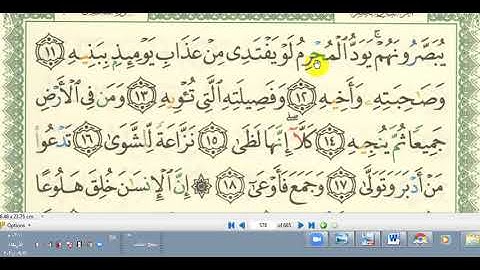 يُبَصَّرُونَهُمْ ۚ يَوَدُّ الْمُجْرِمُ لَوْ يَفْتَدِى مِنْ عَذَابِ يَوْمِئِذٍ بِبَنِيهِ ١١
وَصَاحِبَتِهِ وَأَخِيهِ ١٢ وَفَصِيلَتِهِ الَّتِى تُـْٔوِيهِ ١٣ وَمَن فِى الْأَرْضِ
جَمِيعًا ثُمَّ يُنجِيهِ ١٤ كَلَّآ ۖ إِنَّهَا لَظَىٰ ١٥ نَزَّاعَةً لِّلشَّوَىٰ ١٦ تَدْعُوا۟
مَنْ أَدْبَرَ وَتَوَلَّىٰ ١٧ وَجَمَعَ فَأَوْعَىٰٓ ١٨ ۞ إِنَّ الْإِنسَٰنَ خُلِقَ هَلُوعًا
8.48 x 23.75 cm
Options
570 of 605